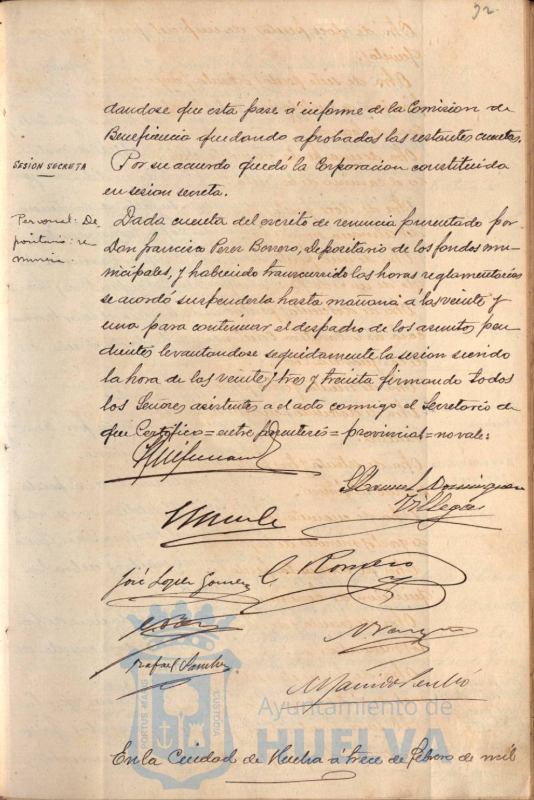 92.
dandose que esta pase á informe de la Comision de
Beneficiencia quedando aprobados las restantes cuentas.
SESION SECRETA
Por su acuerdo quedó la Corporacion constituida
en sesion secreta.
Personal: De
positario: re
nuncia.
Dada cuenta del escrito de renuncia presentado por
Don Francisco Perez Borrero, Depositario de los fondos mu-
nicipales, y habiendo transcurrido las horas reglamentarias
se acordó suspenderla hasta mañana á las veinte y
una para continuar el despacho de los asuntos pen
dientes levantandose seguidamente la sesion siendo
la hora de las veinte y tres y treinta firmando todos
los Señores asistentes a el acto conmigo el Secretario de
que Certifico = entre parentesis = provincial = no vale:
Manuel Dominguez
Villegas
José Lopez Gomez
C. Romero
Rafael Sanchez
A. Vazquez
PORTUS MARIS
CUSTODIA
Ayuntamiento de
HUELVA
En la Ciudad de Huelva á trece de Febrero de mil